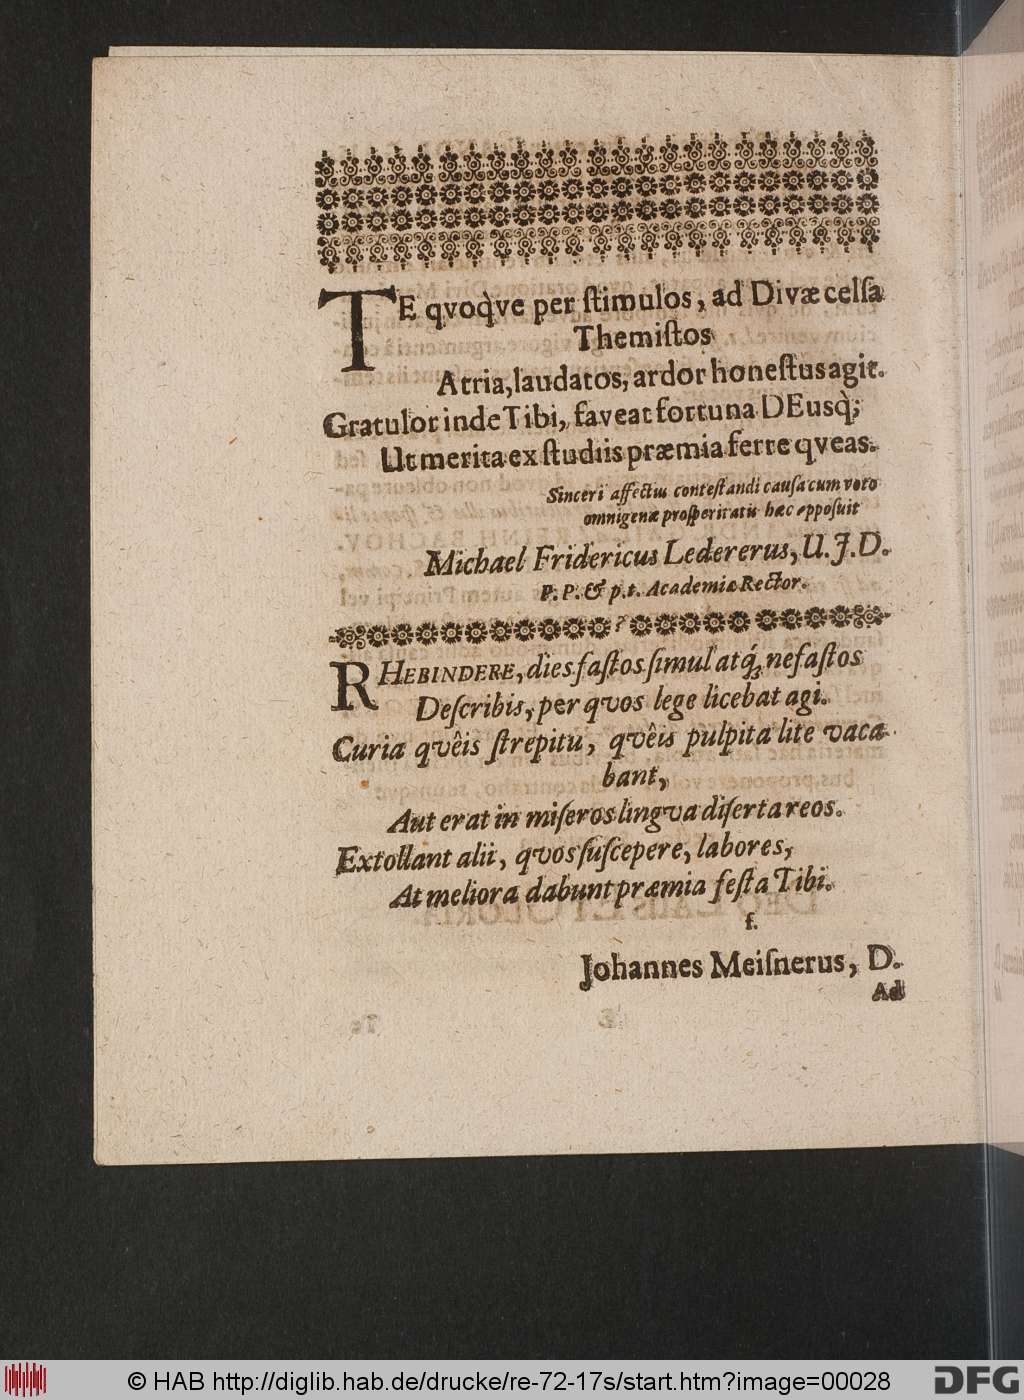 TE qvoq̀ve per ſtimulos, ad Divæ celſa
Themiſtos
Atria, laudatos, ardor honeſtus agit.
Gratulor inde Tibi, faveat fortuna DEusq́;
Ut merita ex ſtudiis præmia ferre qveas.
Sinceri affectus conteſtandi cauſa cum voto
omnigenæ proſperitatis hæc apposuit
Michael Fridericus Ledererus, U. J. D.
P. P. & p. t. Academiæ Rector.
RHEBINDERE, dies faſtos ſimul atq́; nefaſtos
Deſcribis, per qvos lege licebat agi.
Curia qvêis ſtrepitu, qvêis pulpita lite vaca-
bant,
Aut erat in miſeros lingva diſerta reos.
Extollant alii, qvos ſuſcepere, labores,
At meliora dabunt præmia feſta Tibi.
f.
Johannes Meiſnerus, D.
Ad
© HAB http://diglib.hab.de/drucke/re-72-17s/start.htm?image=00028
DFG